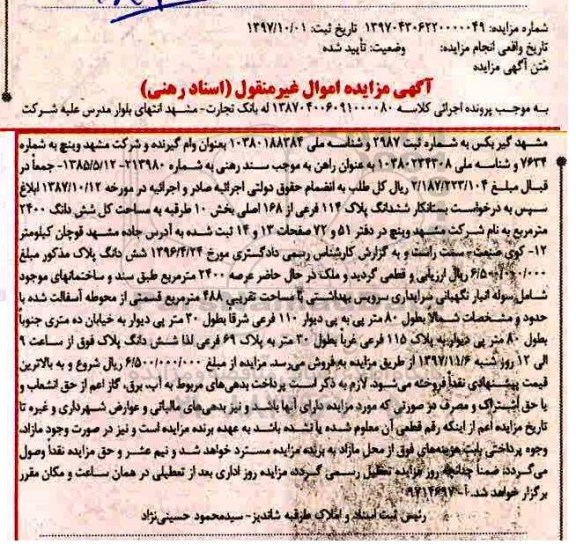 شماره مزایده: ۱۳۹۷۰۴۳۰۶۲۲۰۰۰۰۰۴۹ تاریخ ثبت: ۱۳۹۷/۱۰/۰۱
تاریخ واقعی انجام مزایده: وضعیت: تأیید شده
متن آگهی مزایده
آگهی مزایده اموال غیرمنقول (اسناد رهنی)
به موجب پرونده اجرائی کلاسه ۱۳۸۷۰۴۰۰۶۰۹۱۰۰۰۰۸۰ له بانک تجارت- مشهد انتهای بلوار مدرس علیه شرکت
مشهد گیربکس به شماره ثبت ۲۹۸۷ و شناسه ملی ۱۰۳۸۰۱۸۸۳۸۴ بعنوان وام گیرنده و شرکت مشهد وینچ به شماره
۷۶۳۴ و شناسه ملی ۱۰۳۸۰۲۳۴۳۰۸ به عنوان راهن به موجب سند رهنی به شماره ۲۱۳۹۸۰- ۱۳۸۵/۵/۱۲- جمعاً در
قبال مبلغ ۲/۱۸۷/۲۲۳/۱۰۴ ریال کل طلب به انضمام حقوق دولتی اجرائیه صادر و اجرائیه در مورخه ۱۳۸۷/۱۰/۱۲ ابلاغ
سپس به درخواست بستانکار ششدانگ پلاک ۱۱۴ فرعی از ۱۶۸ اصلی بخش ۱۰ طرقبه به مساحت کل شش دانگ ۲۴۰۰
مترمربع به نام شرکت مشهد وینچ در دفتر ۵۱ و ۷۲ صفحات ۱۳ و ۱۴ ثبت شده به آدرس جاده مشهد قوچان کیلومتر
۱۲- کوی صنعت- سمت راست و به گزارش کارشناس رسمی دادگستری مورخ ۱۳۹۶/۴/۲۴ شش دانگ پلاک مذکور مبلغ
۶/۵۰۰/۰۰۰/۰۰۰ ریال ارزیابی و قطعی گردید و ملک در حال حاضر عرصه ۲۴۰۰ مترمربع طبق سند و ساختمانهای موجود
شامل سوله انبار نگهبانی سرایداری سرویس بهداشتی با مساحت تقریبی ۴۸۸ مترمربع قسمتی از محوطه آسفالت شده با
حدود و مشخصات شمالا بطول ۸۰ متر پی به پی دیوار ۱۱۰ فرعی شرقا بطول ۳۰ متر پی دیوار به خیابان ده متری جنوباً
بطول ۸۰ متر پی دیوار به پلاک ۱۱۵ فرعی غرباً بطول ۳۰ متر به پلاک ۶۹ فرعی لذا شش دانگ پلاک فوق از ساعت ۹
الی ۱۲ روز شنبه ۱۳۹۷/۱۱/۶ از طریق مزایده به فروش می‌رسد. مزایده از مبلغ ۶/۵۰۰/۰۰۰/۰۰۰ ریال شروع و به بالاترین
قیمت پیشنهادی نقداً فروخته می‌شود. لازم به ذکر است پرداخت بدهی‌های مربوط به آب، برق، گاز اعم از حق انشعاب و
یا حق اشتراک و مصرف در صورتی که مورد مزایده دارای آنها باشد و نیز بدهی‌های مالیاتی و عوارض شهرداری و غیره تا
تاریخ مزایده اعم از اینکه رقم قطعی آن معلوم شده یا نشده باشد به عهده برنده مزایده است و نیز در صورت وجود مازاد،
وجوه پرداختی بابت هزینه‌های فوق از محل مازاد به برنده مزایده مسترد خواهد شد و نیم عشر و حق مزایده نقداً وصول
می‌گردد. ضمناً چنانچه روز مزایده تعطیل رسمی گردد مزایده روز اداری بعد از تعطیلی در همان ساعت و مکان مقرر
برگزار خواهد شد. آ- ۹۷۱۴۶۹۷
رئیس ثبت اسناد و املاک طرقبه شاندیز- سیدمحمود حسینی‌نژاد